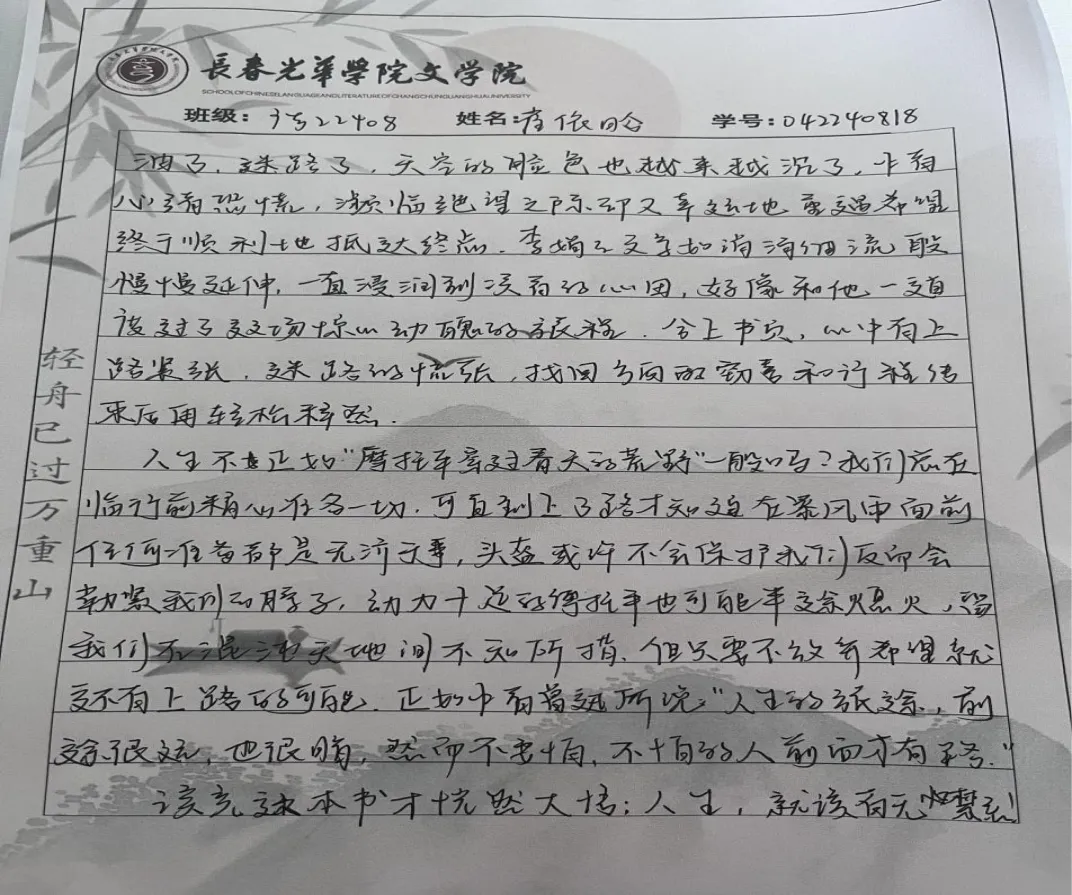 長春光華學院文学院
SCHOOL OF CHINESE LANGUAGE AND LITERATURE OF CHANGCHUN GUANGHUA UNIVERSITY
班级: 22408 姓名: 依晗 学号: 042240818
油了,迷路了,天空的脸色也越来越沉了,卡有
心绪恐慌,濒临绝望之际却又幸运地重遇希望
终于顺利地抵达终点.李娟之文字如涓涓细流般
慢慢延伸,一直浸润到读者的心田,好像和他一道
度过了这场惊心动魄的旅程.合上书页,心中有上
路紧张,迷路的慌张,找回方向的惊喜和行程结
束后用轻松释然.
人生不也正如"摩托车穿过春天的荒野"一般吗?我们总在
临行前精心准备一切,可直到上了路才知道在暴风雨面前
任何准备都是无济于事,头盔或许不会保护我们反而会
勒紧我们的脖子,动力十足的摩托车也可能半途熄火,留
我们在混沌天地间不知所措.但只要不放弃希望就
还有上路的可能.正如中有鲁迅所说"人生的旅途,前
途很远,也很暗,然而不要怕,不怕的人前面才有路."
读完这本书才恍然大悟:人生,就该有无
轻舟已过万重山